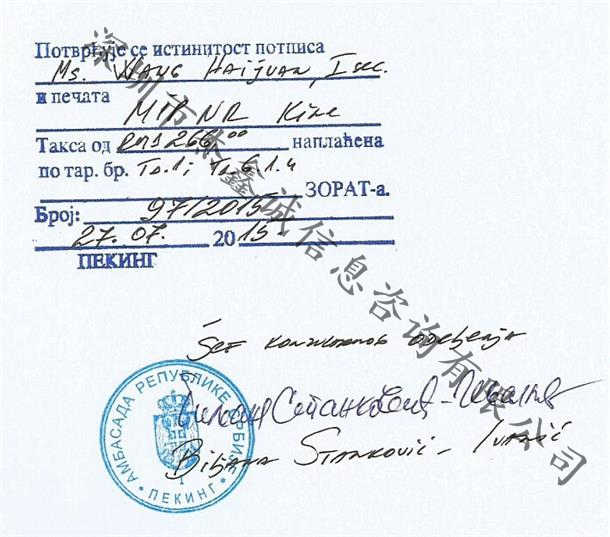 Потврђује се истинитост потписа
Ms. WANG HAIJUAN, I sec.
и печата
MIP NR Kine
Такса од RMB 266,00 наплаћена
по тар. бр. ЗОРАТ-а.
Број: 97/2015
27. 07. 2015
ПЕКИНГ
Šef конзуларног одељења
Биљана Станковић-Ивашић
Biljana Stanković-Ivašić
АМБАСАДА РЕПУБЛИКЕ СРБИЈЕ
• ПЕКИНГ •
深圳市 鑫诚信息咨询有限公司